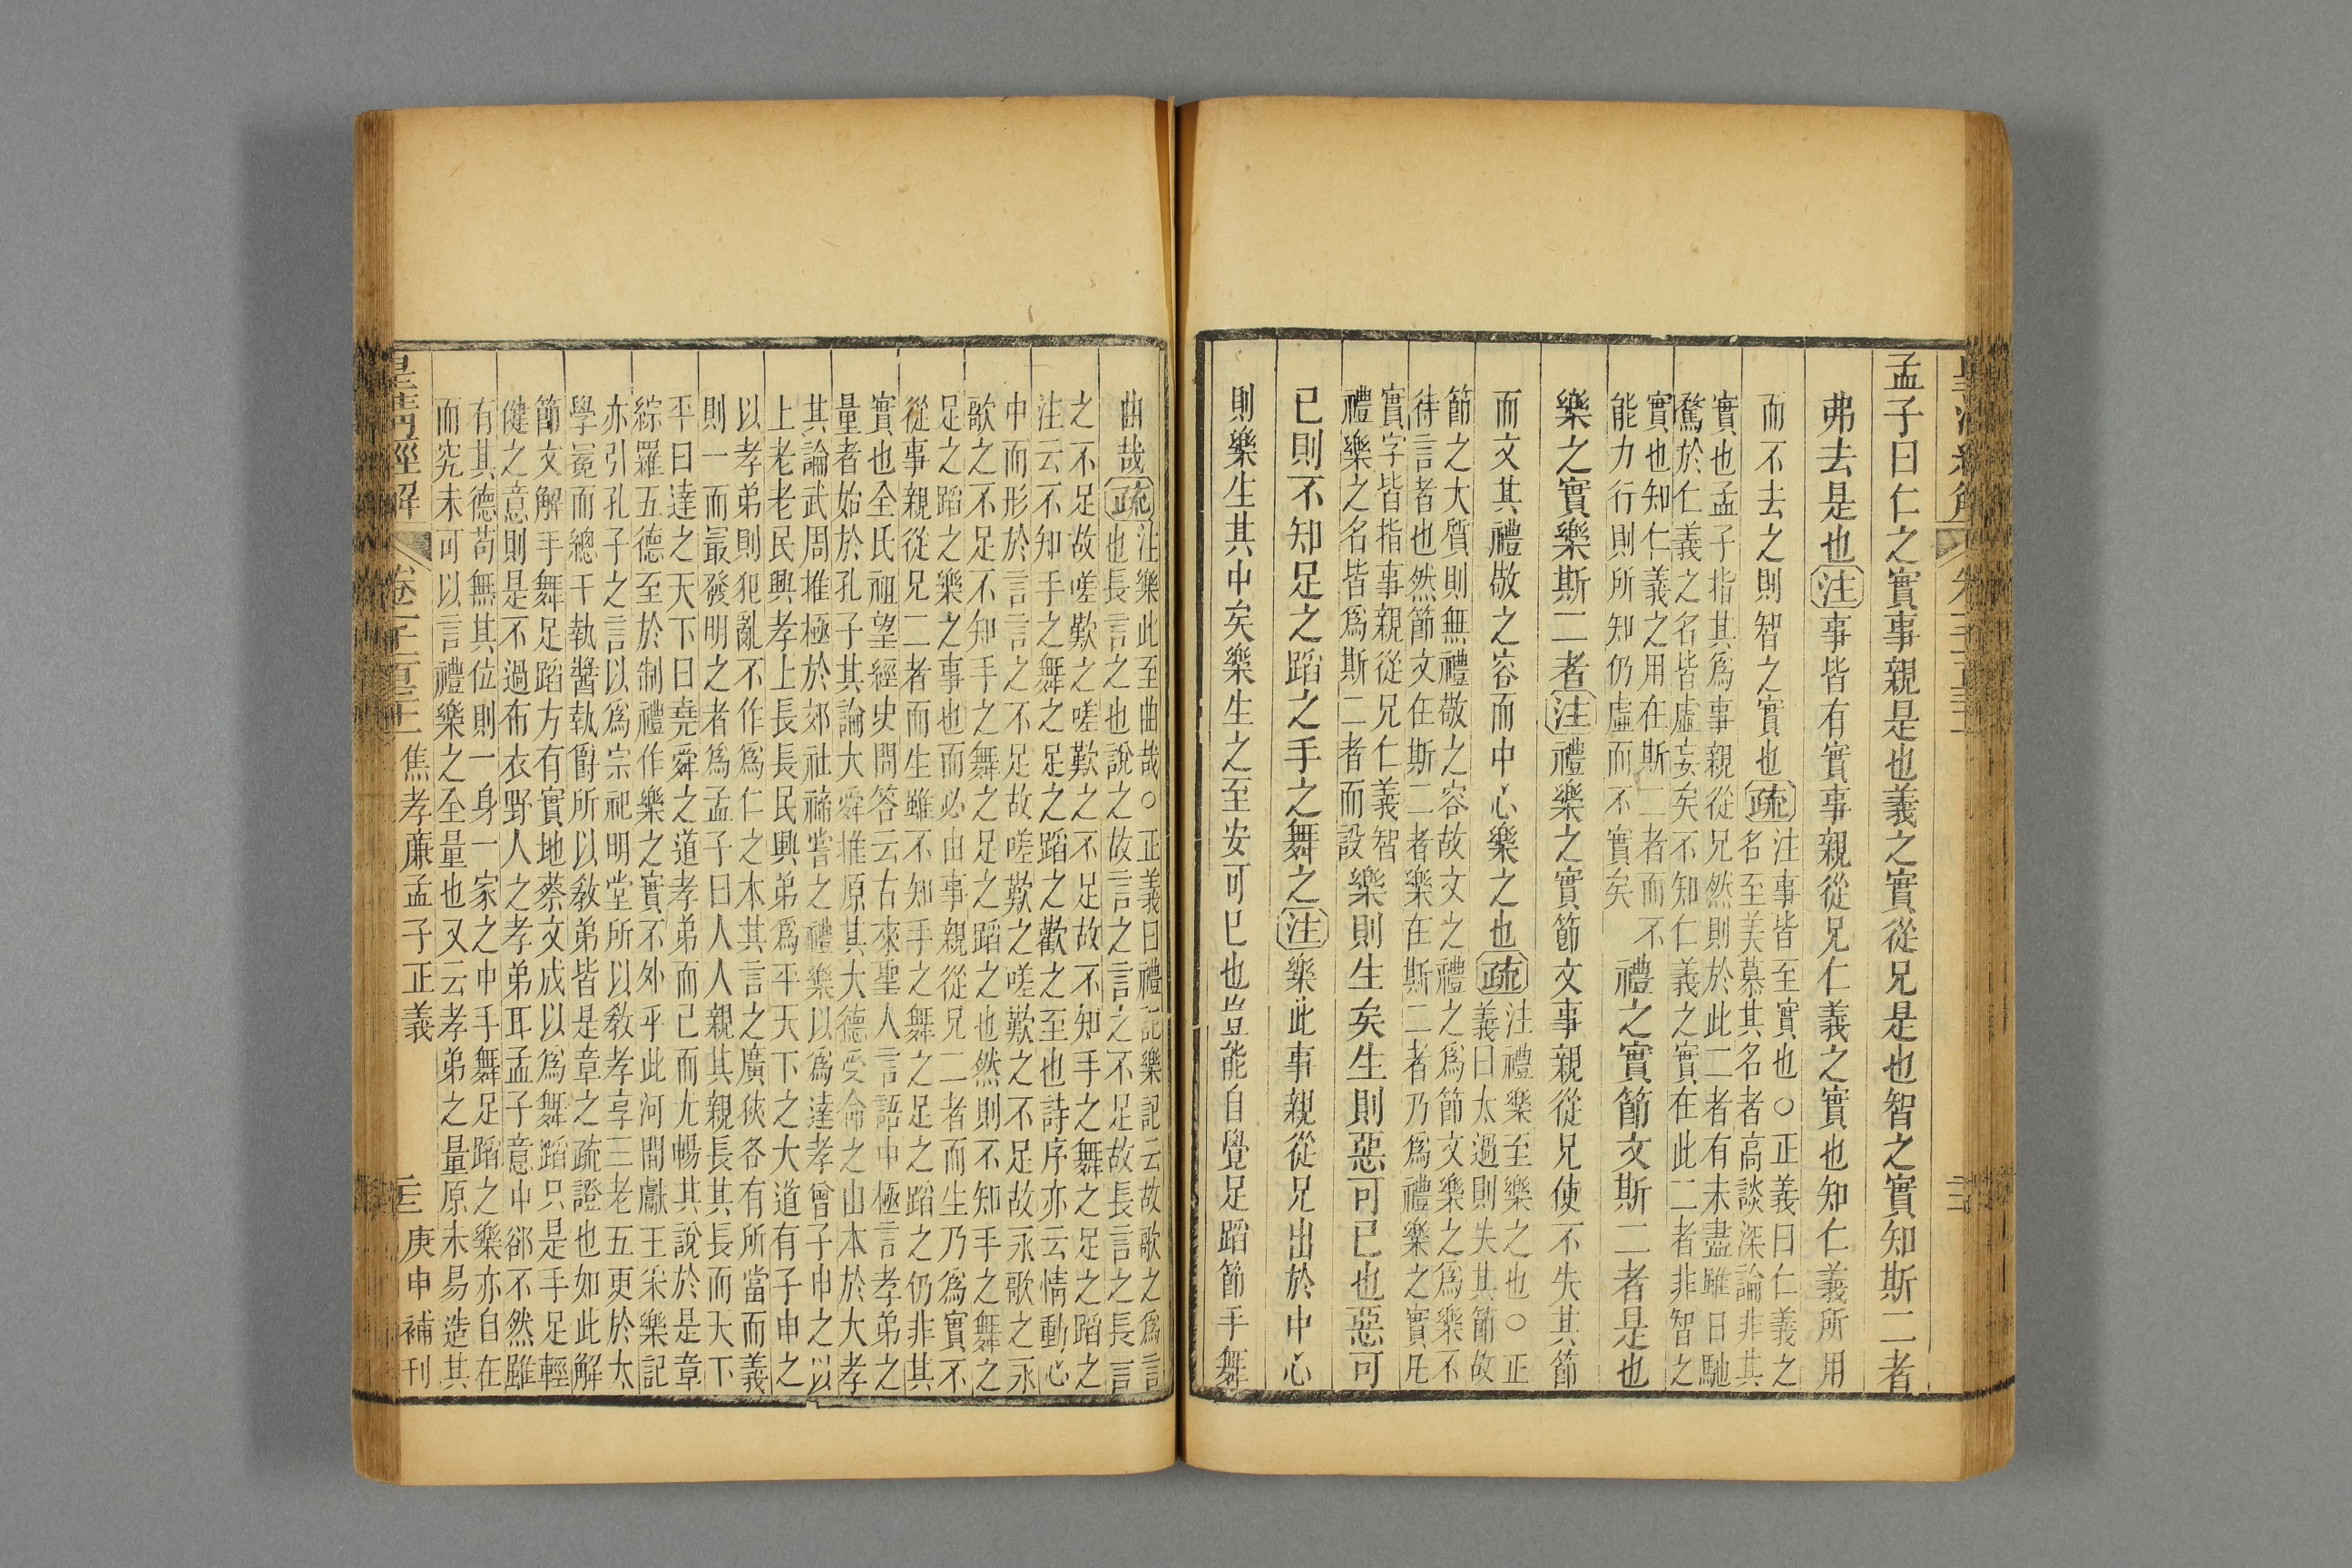 孟子曰仁之實事親是也義之實從兄是也智之實知斯二者
弗去是也注事皆有實事親從兄仁義之實也知仁義所用
而不去之則智之實也疏
注事皆至實也○正義曰仁義之
名至美慕其名者高談深論非其
實也孟子指其爲事親從兄然則於此二者有未盡雖日馳
騖於仁義之名皆虛妄矣不知仁義之實在此二者非智之
實也知仁義之用在斯二者而不
能力行則所知仍虛而不實矣
禮之實節文斯二者是也
樂之實樂斯二者注禮樂之實節文事親從兄使不失其節
而文其禮敬之容而中心樂之也疏
注禮樂至樂之也○正
義曰太過則失其節故
節之大質則無禮敬之容故文之禮之爲節文樂之爲樂不
待言者也然節文在斯二者樂在斯二者乃爲禮樂之實凡
實字皆指事親從兄仁義智
禮樂之名皆爲斯二者而設
樂則生矣生則惡可已也惡可
已則不知足之蹈之手之舞之注樂此事親從兄出於中心
則樂生其中矣樂生之至安可已也豈能自覺足蹈節手舞
曲哉疏
注樂此至曲哉○正義曰禮記樂記云故歌之爲言
也長言之也說之故言之言之不足故長言之長言
之不足故嗟歎之嗟歎之不足故不知手之舞之足之蹈之
注云不知手之舞之足之蹈之歡之至也詩序亦云情動心
中而形於言言之不足故嗟歎之嗟歎之不足故永歌之永
歌之不足不知手之舞之足之蹈之也然則不知手之舞之
足之蹈之樂之事也而必由事親從兄二者而生乃爲實不
從事親從兄二者而生雖不知手之舞之足之蹈之仍非其
實也全氏祖望經史問答云古來聖人言語中極言孝弟之
量者始於孔子其論大舜推原其大德受命之由本於大孝
其論武周推極於郊社禘嘗之禮樂以爲達孝曾子申之以
上老老民興孝上長長民興弟爲平天下之大道有子申之
以孝弟則犯亂不作爲仁之本其言之廣狹各有所當而義
則一而最發明之者爲孟子曰人人親其親長其長而天下
平曰達之天下曰堯舜之道孝弟而已而尤暢其說於是章
綜羅五德至於制禮作樂之實不外乎此河間獻王采樂記
亦引孔子之言以爲宗祀明堂所以敎孝享三老五更於太
學冕而總干執醬執爵所以敎弟皆是章之疏證也如此解
節文解手舞足蹈方有實地蔡文成以爲舞蹈只是手足輕
健之意則是不過布衣野人之孝弟耳孟子意中郤不然雖
有其德苟無其位則一身一家之中手舞足蹈之樂亦自在
而究未可以言禮樂之全量也又云孝弟之量原未易造其
皇淸經解　卷一千一百三十二　焦孝廉孟子正義　三　庚申補刊